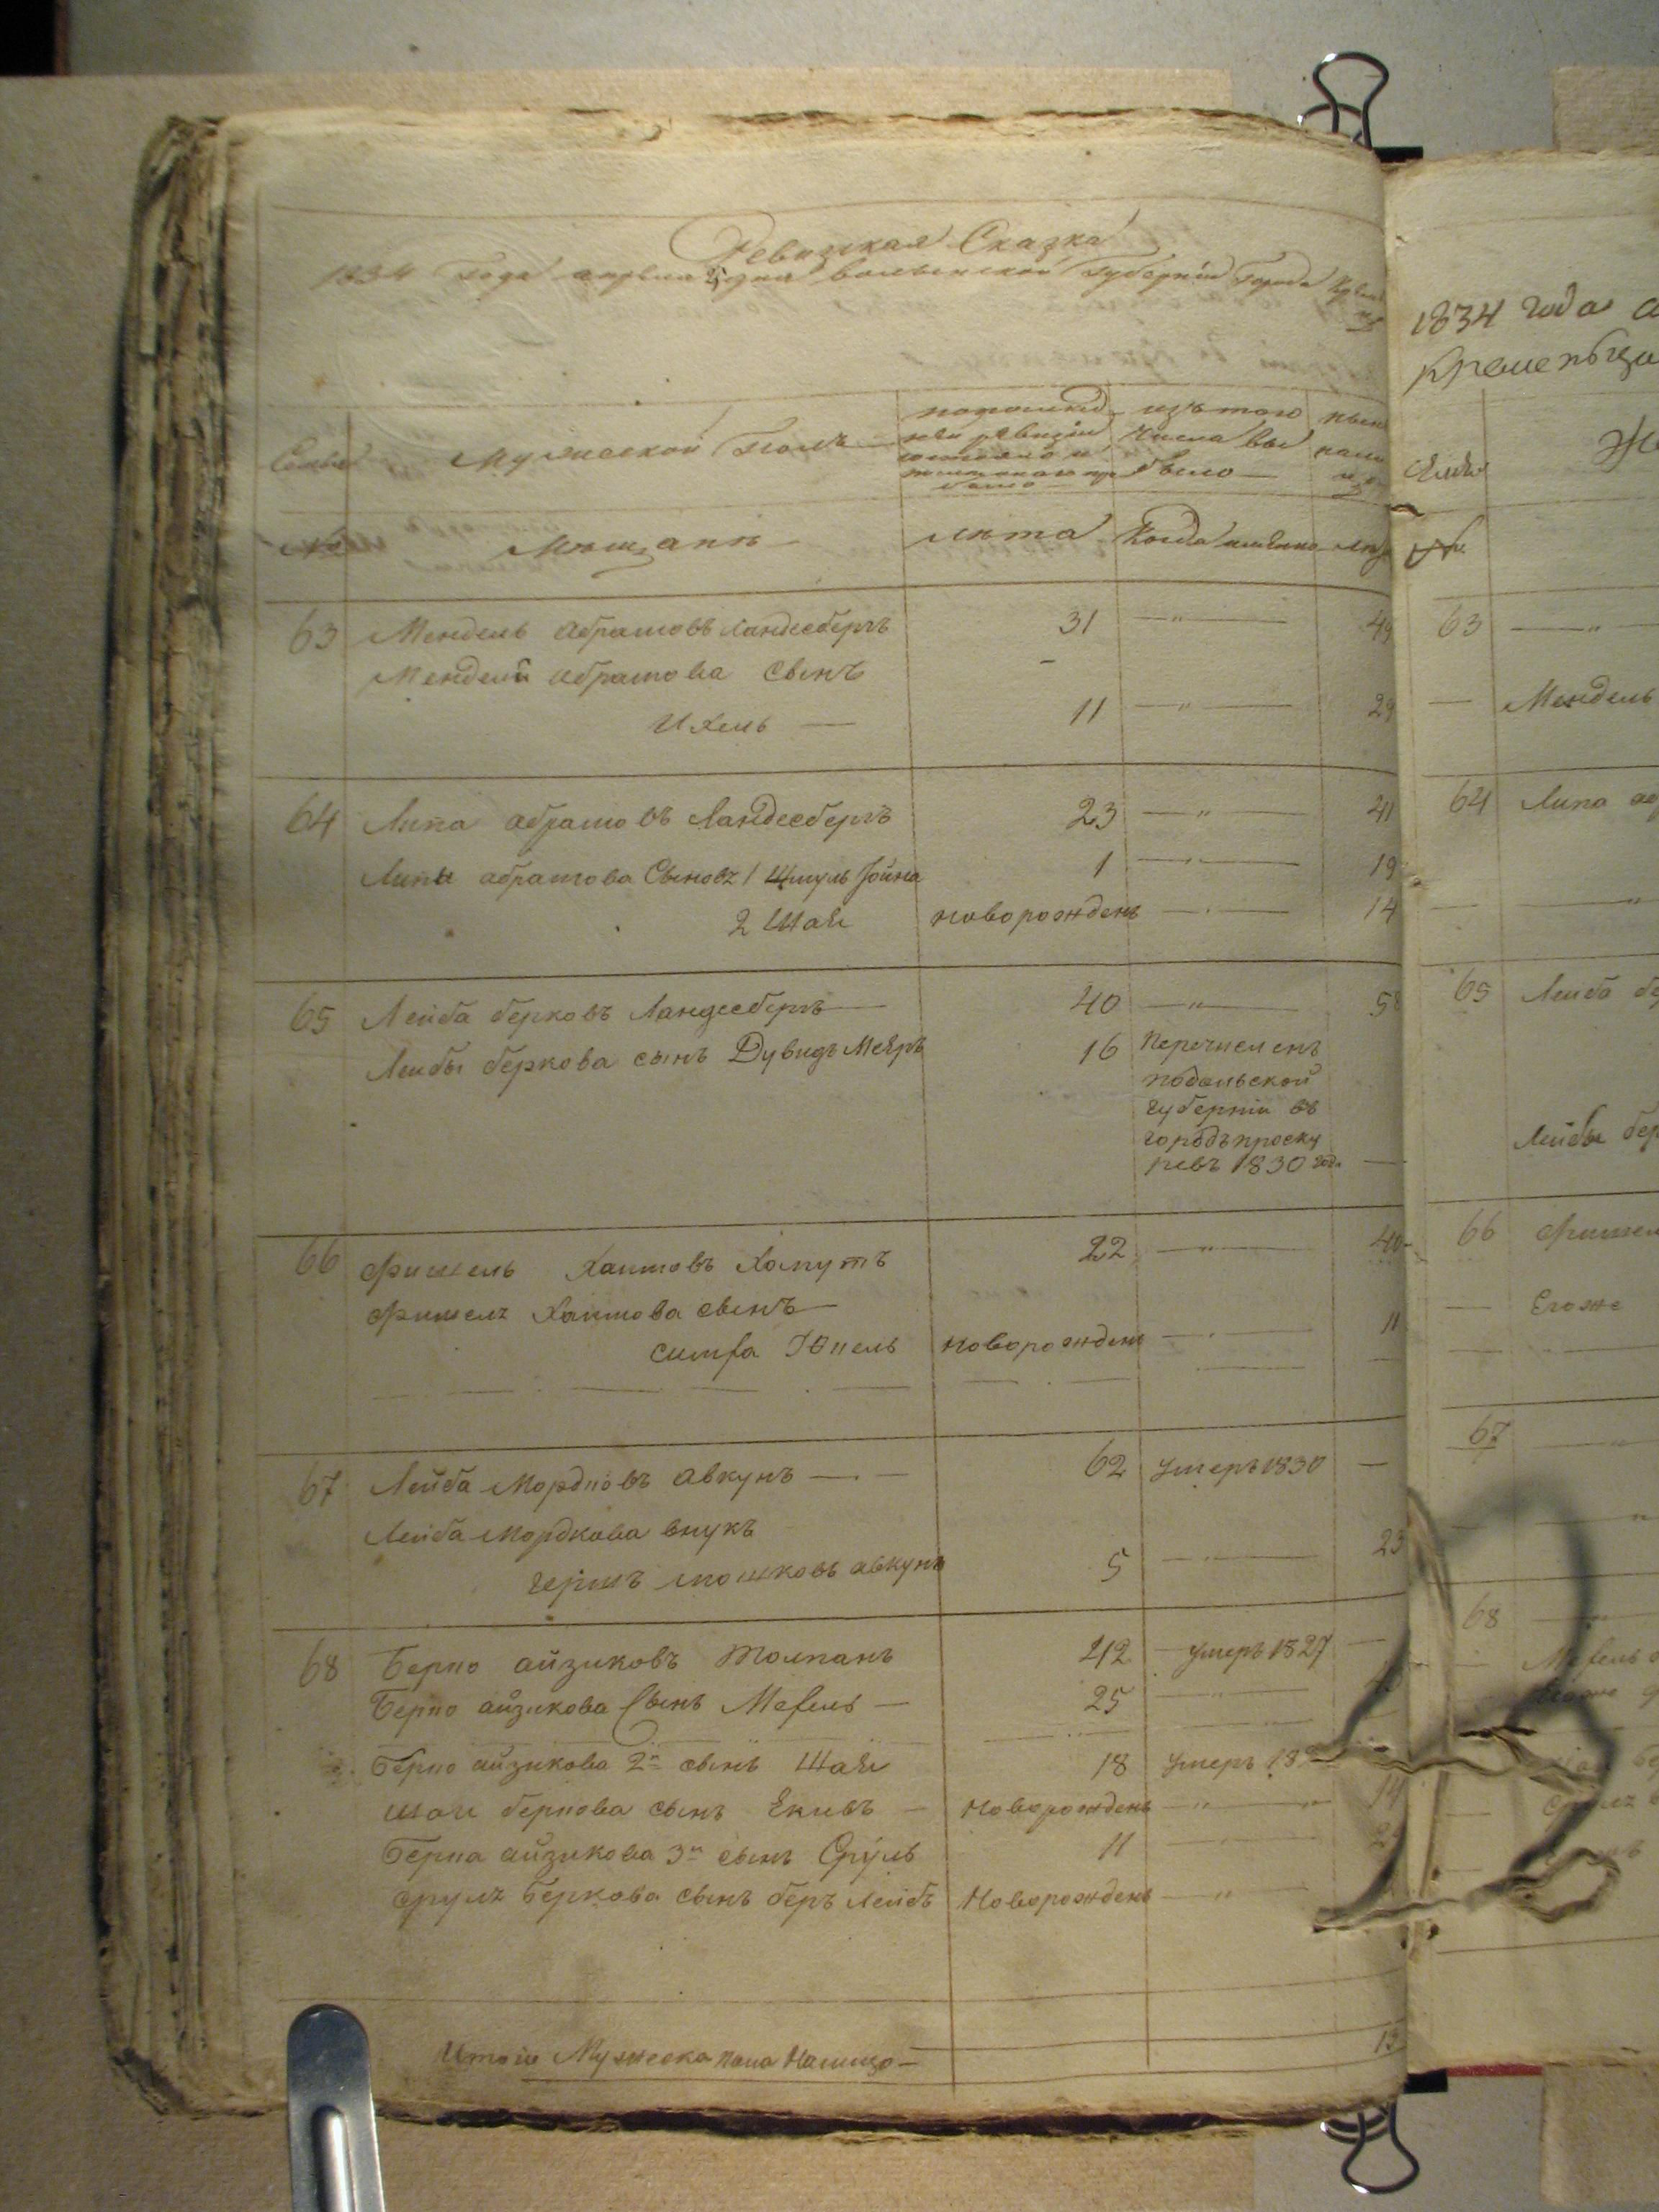 Ревизкая Сказка
1834 Года апреля 25 дня волынской Губернии Города
Семьи Мужеской Полъ
по последней ревизии состояло и изъ того числа выбыло ныне
№ Мещане лета Когда именно лета
63 Мендель абрамовъ Ландесбергъ 31 —"— 49
Менделя абрамова сынъ
Ихель — 11 —"— 29
64 Липа абрамовъ Ландесбергъ 23 —"— 41
Липы абрамова Сыновъ 1 Шмуль Іойна 1 —"— 19
2 Шая новорожденъ —"— 14
65 Лейба берковъ Ландесбергъ — 40 —"— 58
Лейбы беркова сынъ Дувидъ Меяръ 16 Перечисленъ
подольской
губернии въ
городъ проску
ревъ 1830 года —
66 Фишель Хаимовъ Хапутъ 22 —"— 40
Фишеля Хаимова сынъ —
Симха Юпель новорожденъ —"— 11
67 Лейба Мордковъ авкунъ — 62 умеръ 1830 —
Лейба Мордкова внукъ
гершъ мошковъ авкунъ 5 —"— 23
68 Берко айзиковъ Толпанъ 42 умеръ 1827 —
Берко айзикова Сынъ Мехель — 25 —"—
Берко айзикова 2й сынъ Шая 18 умеръ
шаи беркова сынъ Екивъ — Новорожденъ —"— 14
Берка айзикова 3й сынъ Сруль 11 —"—
Сруля Беркова сынъ беръ лейбъ Новорожденъ —"—
Итого Мужеска пола Налицо — 13
1834 года
кременца
Семьи
№
63 —"—
— Мендель
64 Липа
— —"—
65 Лейба
Лейбы
66 Фишель
— Егоже
67 —"—
68